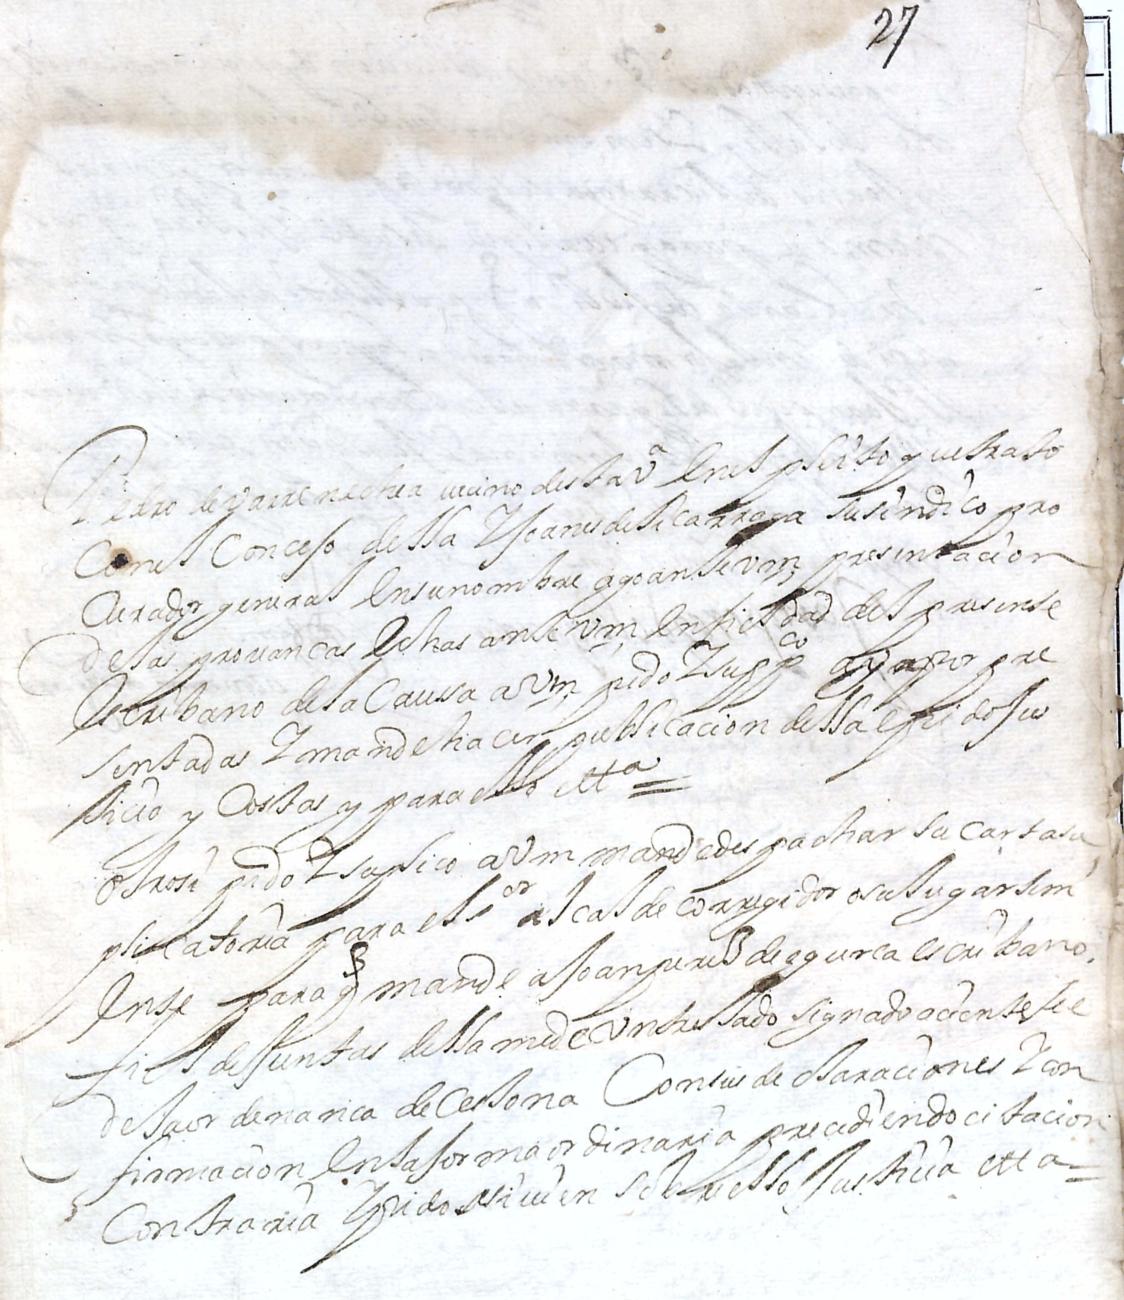 27
Pedro de yarrenechea vecino desta vª En el pleito que trato
Con el Concejo della Y Joanes de licarraga su sindico pro
curador general En su nombre ago ante vm presentacion
de las provancas hechas ante vm En fieldad del presente
Escribano de la Caussa a vm pido Y supco aya por pre
sentadas Y mande hacer publicacion dellas pido Jus
ticia y Costas y para ello ettª
otrosi pido Y suplico a vm mande despachar su carta su
plicatoria para el sor alcalde corregidor o su lugar teni
Ente para q mande a Joan perez de egurca escribano
fiel de Juntas della me de un treslado signado aciente fee
del aor de marica de Cestona Con sus declaraciones Y con
firmacion En la forma ordinaria precediendo citacion
Contraria Y pido assi vien sobre ello Justicia etta